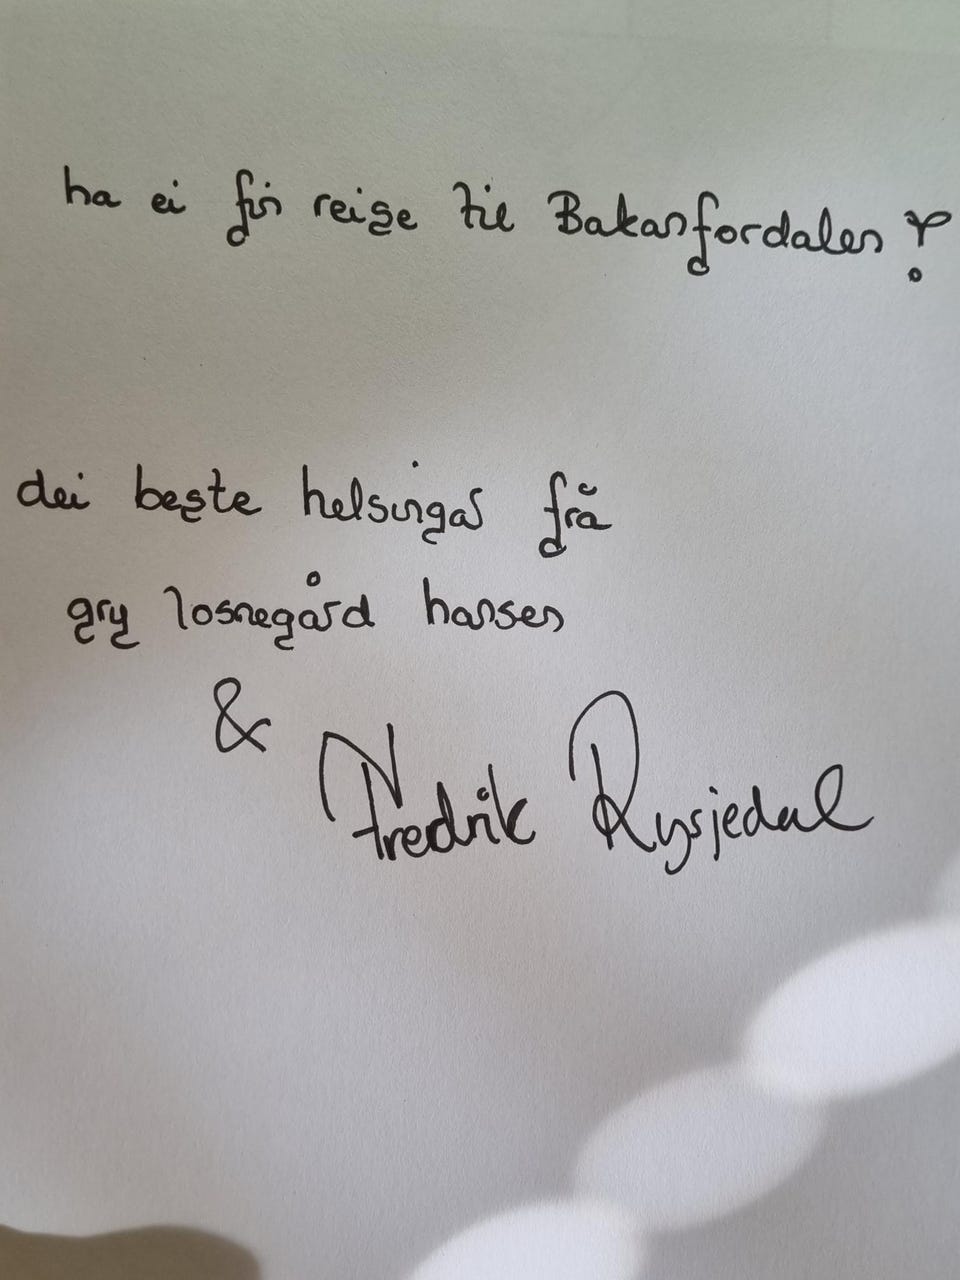 ha ei fin reise til Bakanfordalen !
dei beste helsingar frå
gry losnegård hansen
& Fredrik Rysjedal